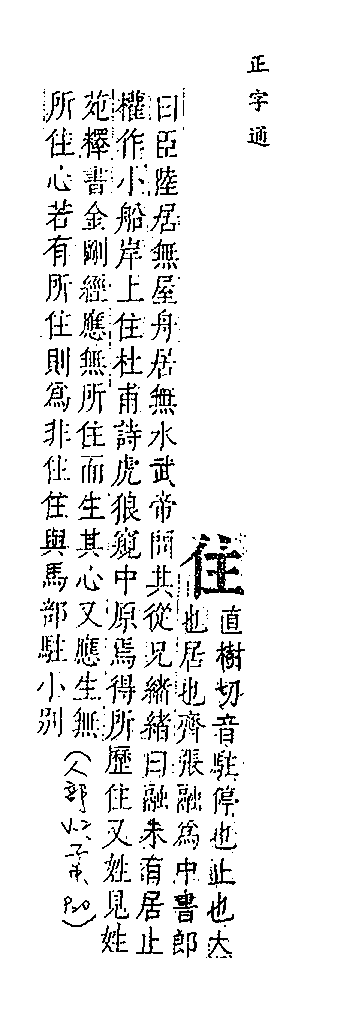 正字通
住 直樹切音駐停也止也大
也居也齊張融爲中書郎
曰臣陸居無屋舟居無水武帝問其從兄緒緒曰融未有居止
權作小船岸上住杜甫詩虎狼窺中原焉得所歷住又姓見姓
苑釋書金剛經應無所住而生其心又應生無
所住心若有所住則爲非住住與馬部駐小別
(人部 子集 P20)